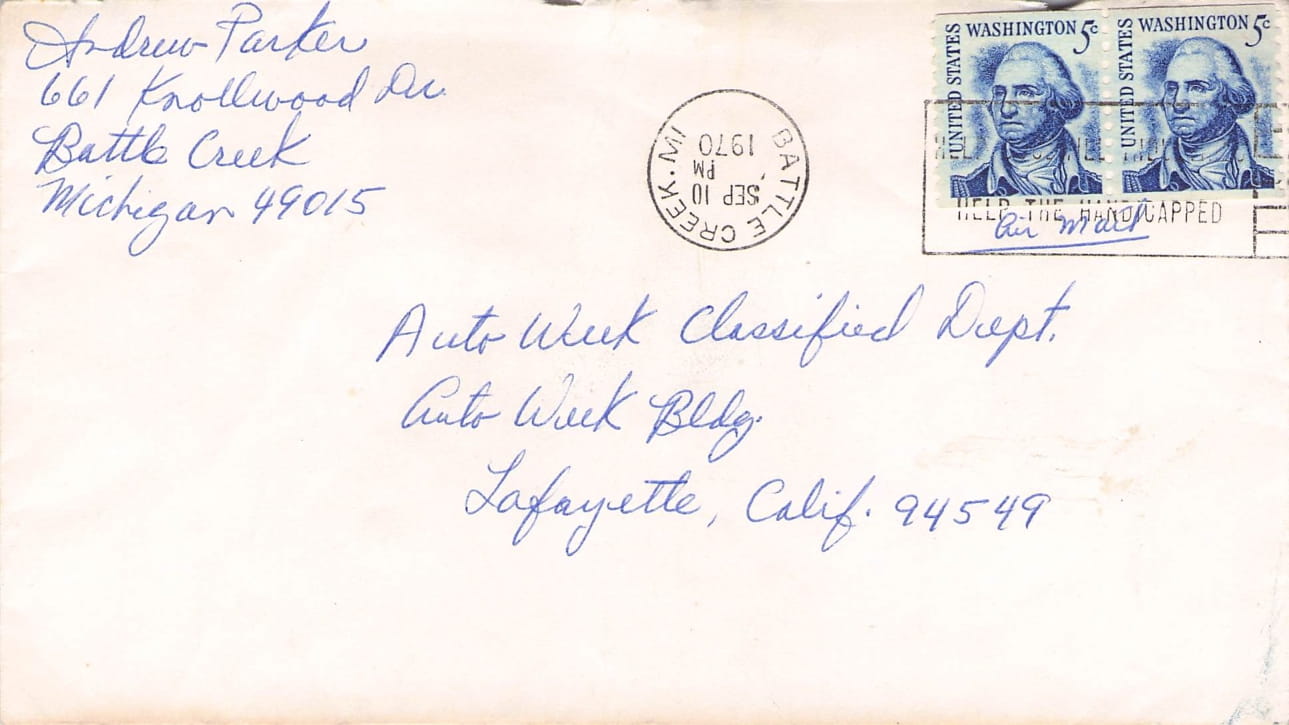 Andrew Parker
661 Knollwood Dr.
Battle Creek
Michigan 49015
UNITED STATES WASHINGTON 5c
UNITED STATES WASHINGTON 5c
BATTLE CREEK. MI
SEP 10
PM
1970
HELP THE HANDICAPPED
Air Mail
Auto Week Classified Dept.
Auto Week Bldg.
Lafayette, Calif. 94549